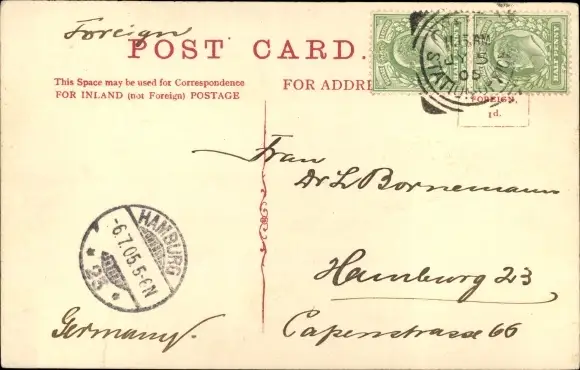 Foreign
POST CARD.
This Space may be used for Correspondence
FOR INLAND (not Foreign) POSTAGE
FOR ADDRE
HALF PENNY
FOREIGN,
1d.
JY 5
05
Frau
Dr L Bornemann
HAMBURG
-6.7.05.5-6N
* 23 *
Hamburg 23
Germany.
Capenstrasse 66